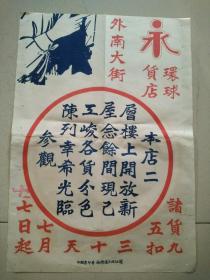 環球
貨店
外南大街
本店二
層樓上開放新
屋念餘間現己
工峻各貨分色
陳列幸希光臨
參觀
諸貨九
五扣
三十天
七月
十七日起